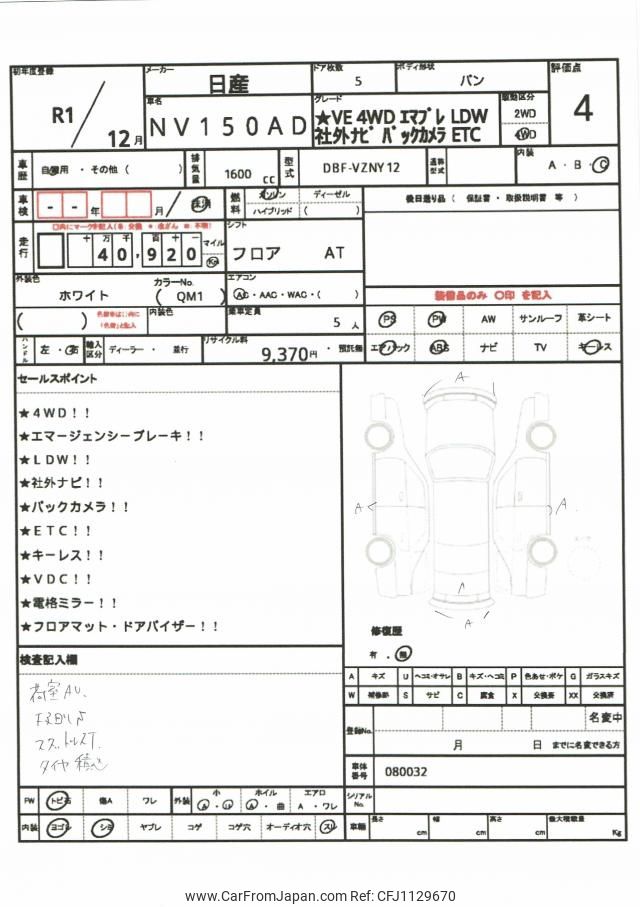 初年度登録 R1／12月 メーカー 日産 ドア枚数 5 ボディ形状 バン 評価点 4
車名 NV150AD グレード ★VE 4WD エマブレ LDW 社外ナビ バックカメラ ETC 駆動区分 2WD 4WD
車歴 自家用・その他（ ） 排気量 1600 cc 型式 DBF-VZNY12 通称型式 内装 A・B・C
車検 - - 年 月／ 抹消 燃料 ガソリン ディーゼル ハイブリッド （ ） 後日送り品（ 保証書・取扱説明書 等 ）
走行 十万千百十一 40,920 マイル Km シフト フロア AT
外装色 ホワイト カラーNo. （ QM1 ） エアコン AC・AAC・WAC・（ ） 装備品のみ 〇印 を記入
（ ） 内装色 乗車定員 5 人 PS PW AW サンルーフ 革シート
ハンドル 左・右 輸入区分 ディーラー・並行 リサイクル料 9,370円・預託無 エアバック ABS ナビ TV キーレス
セールスポイント
★4WD！！
★エマージェンシーブレーキ！！
★LDW！！
★社外ナビ！！
★バックカメラ！！
★ETC！！
★キーレス！！
★VDC！！
★電格ミラー！！
★フロアマット・ドアバイザー！！
A
A
A
A
修復歴
有・無
検査記入欄
荷室AU、
タイヤ積込
A キズ U ヘコミ・オサレ B キズ・ヘコミ P 色あせ・ボケ G ガラスキズ
W 補修跡 S サビ C 腐食 X 交換要 XX 交換済
登録No. 名変中
月 日 までに名変できる方
車体番号 080032
FW トビ石 傷A ワレ 外装 小 A・U ホイル A・曲 エアロ A・ワレ シリアルNo.
内装 ヨゴレ シミ ヤブレ コゲ コゲ穴 オーディオ穴 スレ 車輛 長さ cm 幅 cm 高さ cm 最大積載量 Kg
www.CarFromJapan.com Ref: CFJ1129670